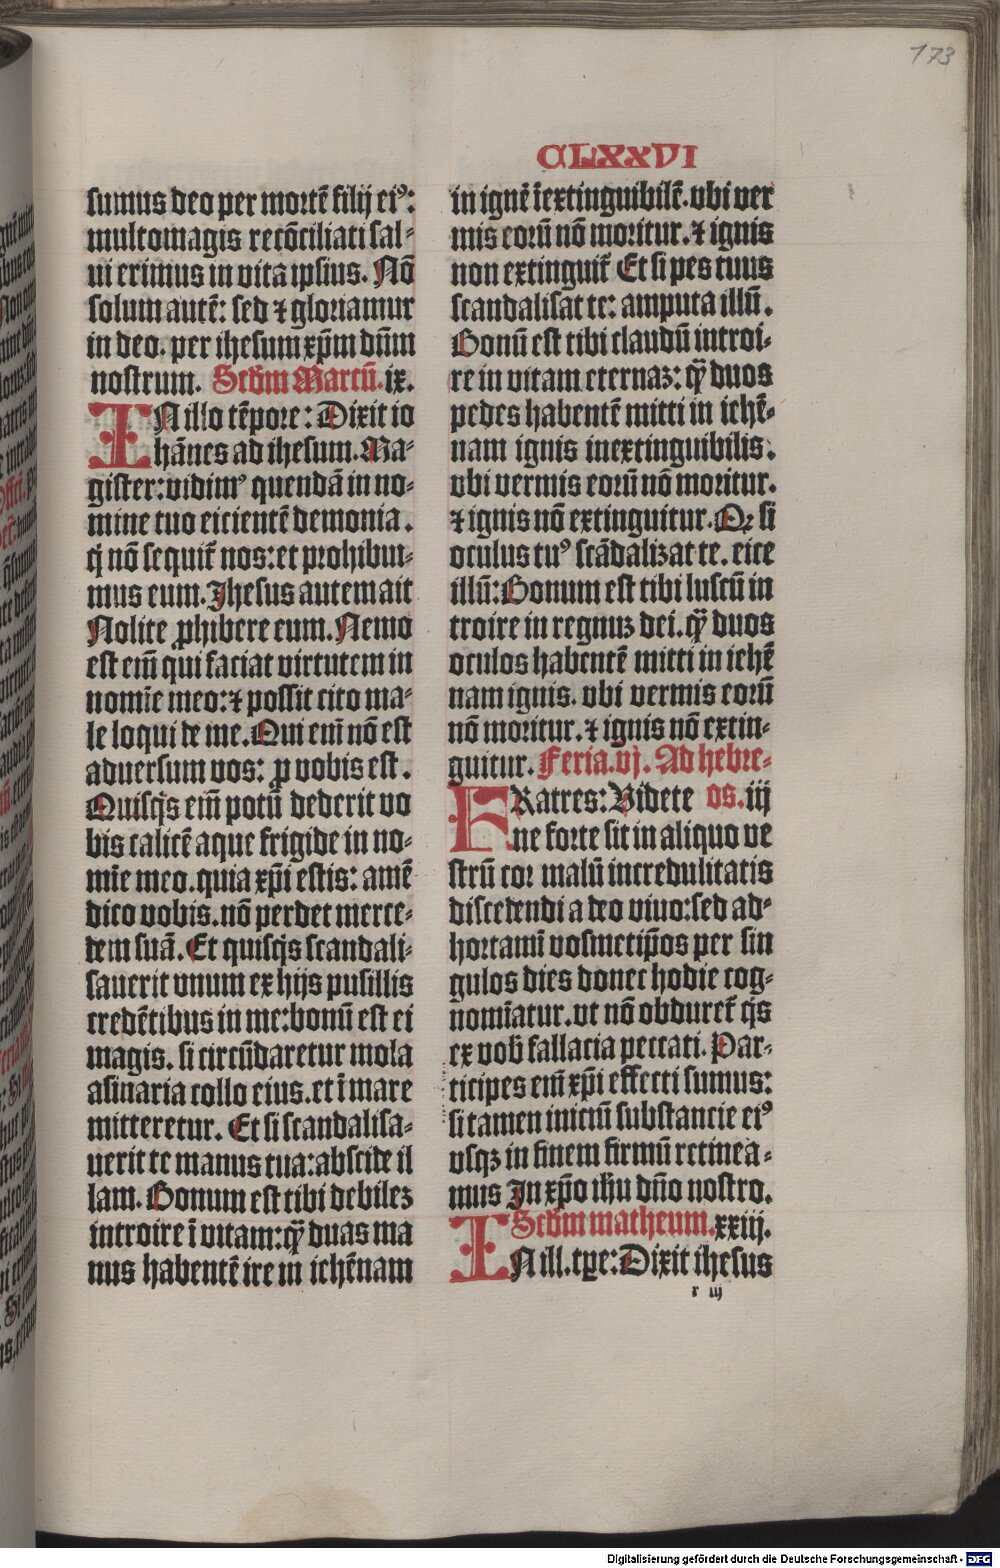 173
CLXXVI
sumus deo per mortē filij eiꝰ:
multomagis recōciliati sal-
ui erimus in vita ipsius. Nō
solum autē: sed ⁊ gloriamur
in deo. per ihesum xp̄m dn̄m
nostrum. Scd̄m Marcū. ix.
IN illo tēpore: Dixit io
hānes ad ihesum. Ma-
gister: vidimꝰ quendā in no-
mine tuo eicientē demonia.
q̄ nō sequit̄ nos: et prohibui-
mus eum. Jhesus autem ait
Nolite ꝓhibere eum. Nemo
est em̄ qui faciat virtutem in
nomīe meo: ⁊ possit cito ma-
le loqui de me. Qui em̄ nō est
aduersum vos: ꝓ vobis est.
Quisq̄s em̄ potū dederit vo
bis calicē aque frigide in no-
mīe meo. quia xp̄i estis: amē
dico vobis. nō perdet merce-
dem suā. Et quisq̄s scandali-
sauerit vnum ex hijs pusillis
credētibus in me: bonū est ei
magis. si circūdaretur mola
asinaria collo eius. et ī mare
mitteretur. Et si scandalisa-
uerit te manus tua: abscide il
lam. Bonum est tibi debilez
introire ī vitam: q̄ȝ duas ma
nus habentē ire in iehēnam
in ignē īextinguibilē. vbi ver
mis eorū nō moritur. ⁊ ignis
non extinguit̄ Et si pes tuus
scandalisat te: amputa illū.
Bonū est tibi claudū introi-
re in vitam eternaz: q̄ȝ duos
pedes habentē mitti in iehē-
nam ignis inextinguibilis.
vbi vermis eorū nō moritur.
⁊ ignis nō extinguitur. Qꝛ si
oculus tuꝰ scādalizat te. eice
illū: Bonum est tibi luscū in
troire in regnuz dei. q̄ȝ duos
oculos habentē mitti in iehē
nam ignis. vbi vermis eorū
nō moritur. ⁊ ignis nō extin-
guitur. Feria. vj. Ad hebre-
FRatres: Videte os. iij
ne forte sit in aliquo ve
strū cor malū incredulitatis
discedendi a deo viuo: sed ad-
hortamī vosmetip̄os per sin
gulos dies donec hodie cog-
nomīatur. vt nō obduret̄ q̄s
ex vob̄ fallacia peccati. Par-
ticipes em̄ xp̄i effecti sumus:
si tamen iniciū substancie eiꝰ
vsqȝ in finem firmū retinea-
mus In xp̄o ihu dn̄o nostro.
Scd̄m matheum. xxiij.
IN ill. tp̄e: Dixit ihesus
r iij
Digitalisierung gefördert durch die Deutsche Forschungsgemeinschaft - DFG